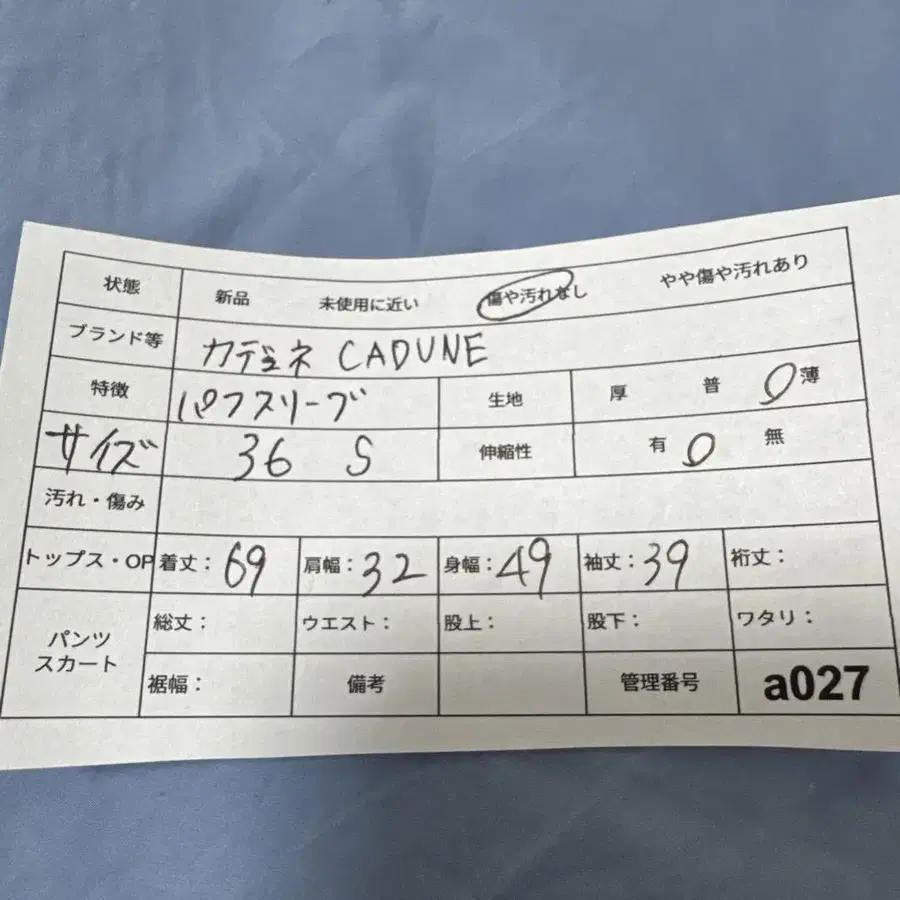 状態 新品 未使用に近い 傷や汚れなし やや傷や汚れあり
ブランド等 カデュネ CADUNE
特徴 パフスリーブ 生地 厚 普 薄
サイズ 36 S 伸縮性 有 無
汚れ・傷み
トップス・OP 着丈: 69 肩幅: 32 身幅: 49 袖丈: 39 裄丈:
パンツ スカート 総丈: ウエスト: 股上: 股下: ワタリ:
裾幅: 備考 管理番号 a027